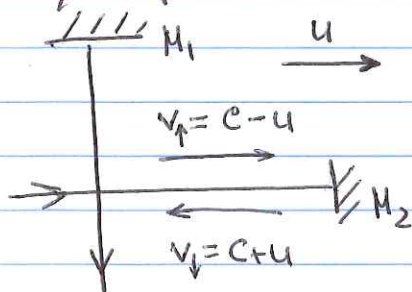 M₁
u
v↑ = c-u
M₂
v↓ = c+u